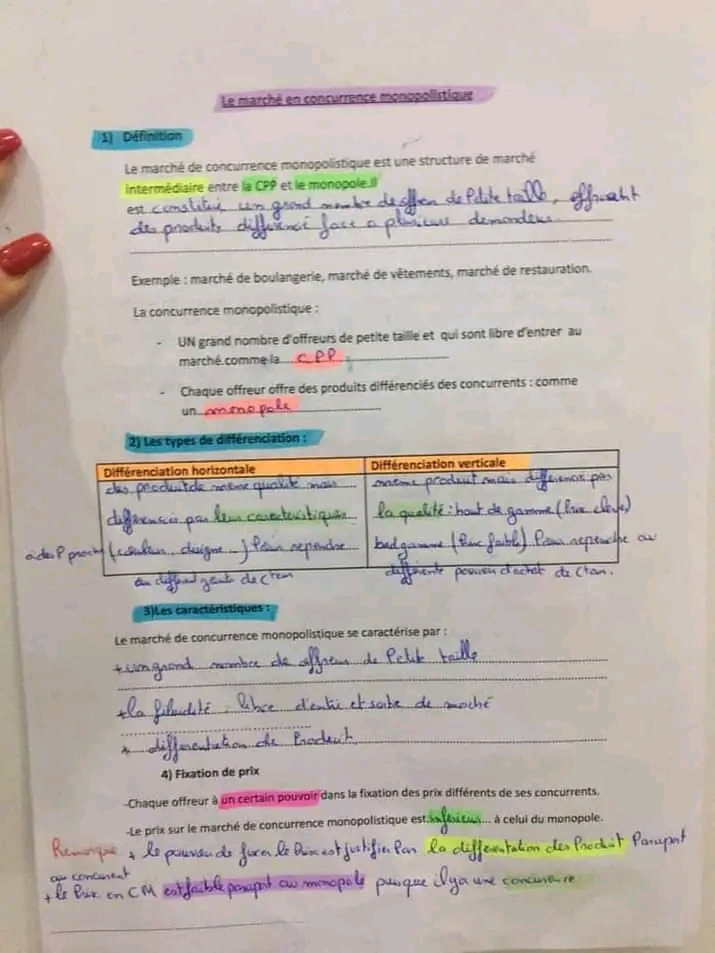 Le marché en concurrence monopolistique
1) Définition
Le marché de concurrence monopolistique est une structure de marché
intermédiaire entre la CPP et le monopole.Il
est constitué un grand nombre de offreu de Petite taille, offraeht
des produits différencié face a plusieurs demandeur.
Exemple : marché de boulangerie, marché de vêtements, marché de restauration.
La concurrence monopolistique :
- UN grand nombre d'offreurs de petite taille et qui sont libre d'entrer au
marché.comme la CPP
- Chaque offreur offre des produits différenciés des concurrents : comme
un monopole
2) Les types de différenciation :
Différenciation horizontale
des produit de meme qualité mais
differencié par leur caractéristiques
à des P proche (couleur, disigne...) Pour rependre
au différent gouts de
Différenciation verticale
meme produit mais différencié par
la qualité : haut de gamme (Prix éleve)
bad gamme (Prix faible) Pour repenche au
différente pouvoir d'achat de
3)Les caractéristiques :
Le marché de concurrence monopolistique se caractérise par :
+ un grand nombre de offreur de Petit taille
+ la fluidité : libre d'entré et sortie de maché
+ differentiation de Produit
4) Fixation de prix
-Chaque offreur à un certain pouvoir dans la fixation des prix différents de ses concurrents.
-Le prix sur le marché de concurrence monopolistique est inférieur... à celui du monopole.
Remarque + le pouvoir de fixer le Prix est justifier Par la différentation des Produit Parapport
au concurent
+ le Prix en CM est faible parapport au monopole puisque il y a une concurence